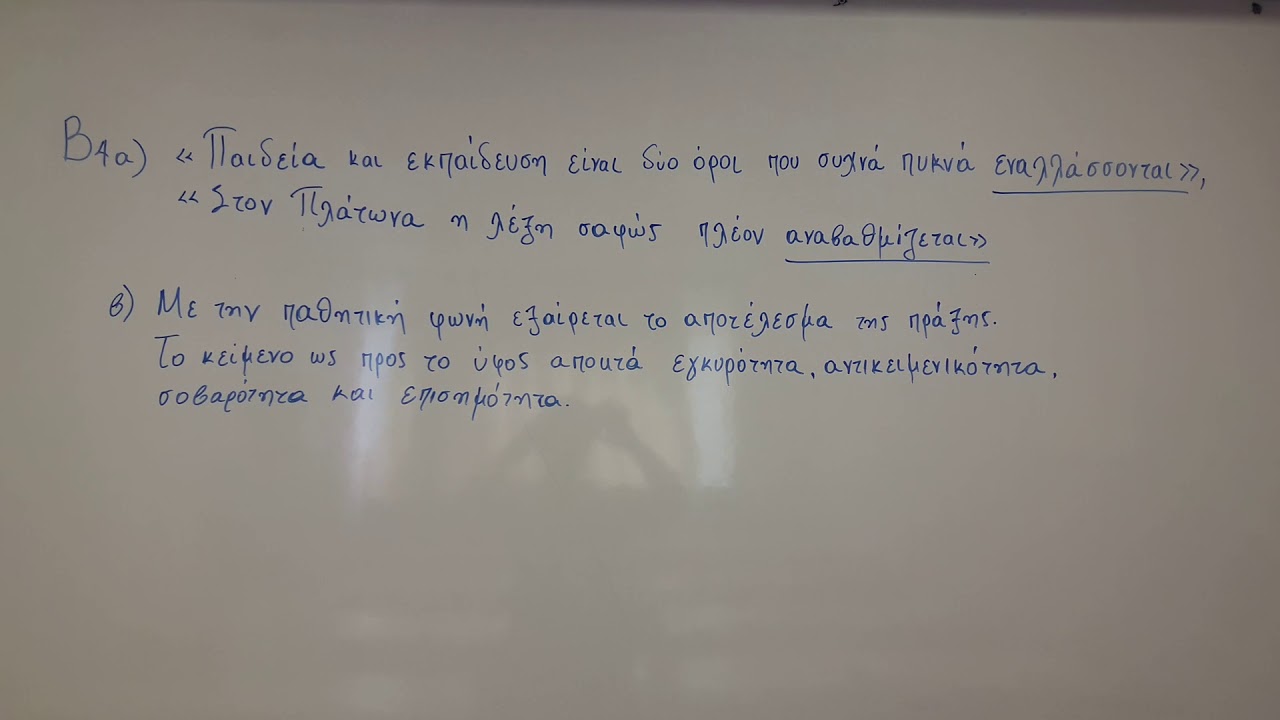 Β4α) «Παιδεία και εκπαίδευση είναι δύο όροι που συχνά πυκνά εναλλάσσονται»,
«Στον Πλάτωνα η λέξη σαφώς πλέον αναβαθμίζεται»
β) Με την παθητική φωνή εξαίρεται το αποτέλεσμα της πράξης.
Το κείμενο ως προς το ύφος αποκτά εγκυρότητα, αντικειμενικότητα,
σοβαρότητα και επισημότητα.